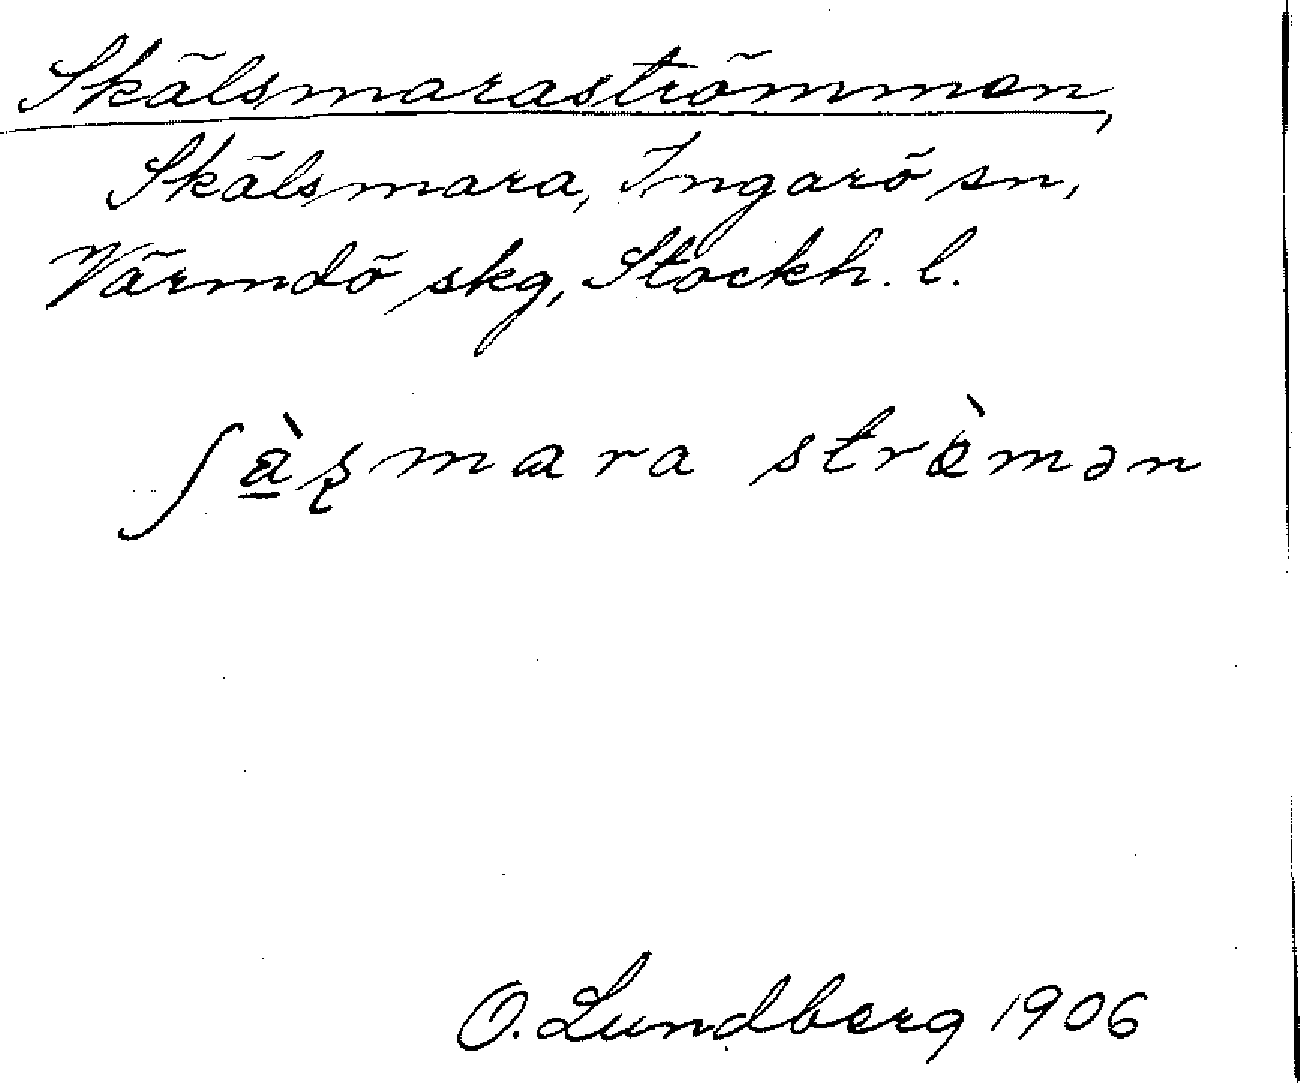 Skälsmaraströmmen,
Skälsmara, Ingarö sn,
Värmdö skg, Stockh. l.
ʃæ̠̀ʂmara strømən
O. Lundberg 1906